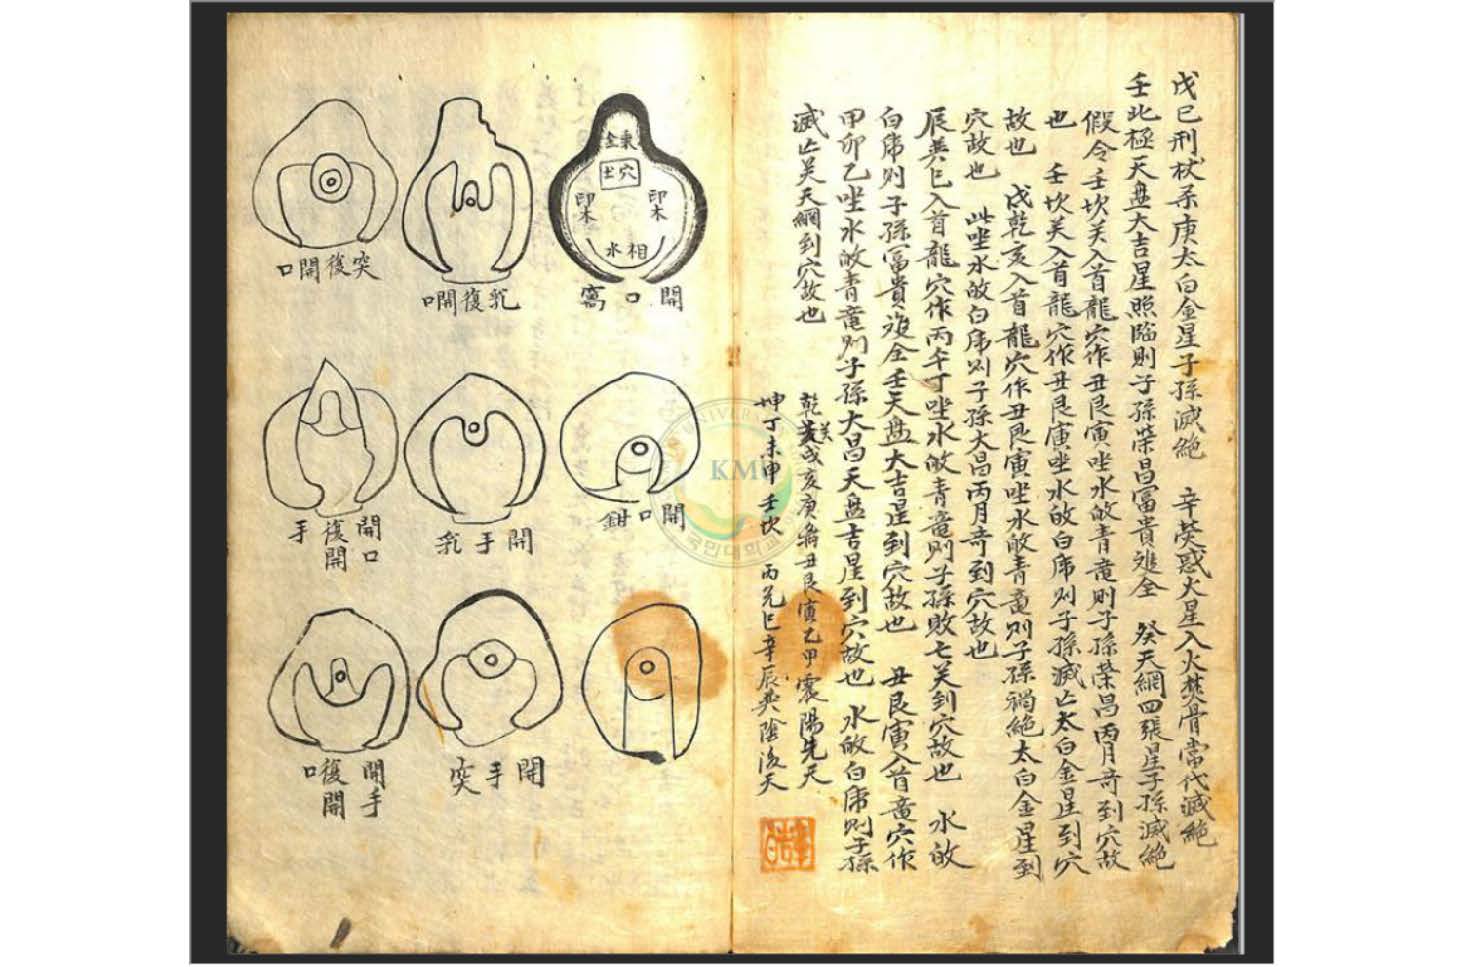 戊己刑杖系庚太白金星子孫滅絶 辛熒惑火星入火焚骨當代滅絶
壬此極天盘大吉星照臨則子孫荣昌冨貴 全 癸天網四張星子孫滅絶
假令壬坎关入首龍穴作丑艮寅坐水 青竜則子孫荣昌丙月奇到穴故
也 壬坎关入首龍穴作丑艮寅坐水 白虎则子孫滅亡太白金星到穴
故也 戊乾亥入首龍穴作丑艮寅坐水 青竜则子孫禍絶太白金星到
穴故也 此坐水 白虎则子孫大昌丙月奇到穴故也
辰巽巳入首龍穴作丙午丁坐水 青竜則子孫敗亡关到穴故也 水
白虎则子孫冨貴 全壬天盘大吉星到穴故也 丑艮寅入首竜穴作
甲卯乙坐水 青竜则子孫大昌天盘吉星到穴故也 水 白虎则子孫
滅亡关天網到穴故也
乾 戌亥庚 丑艮寅乙甲震陽先天
坤丁未申壬坎 丙兌巳辛辰巽陰後天
乘金
穴土
印木
印木
相水
開口窩
乳復開口
突復開口
開口鉗
開手乳
開口復開手
開手突
開手復開口
KMU
국민대학교